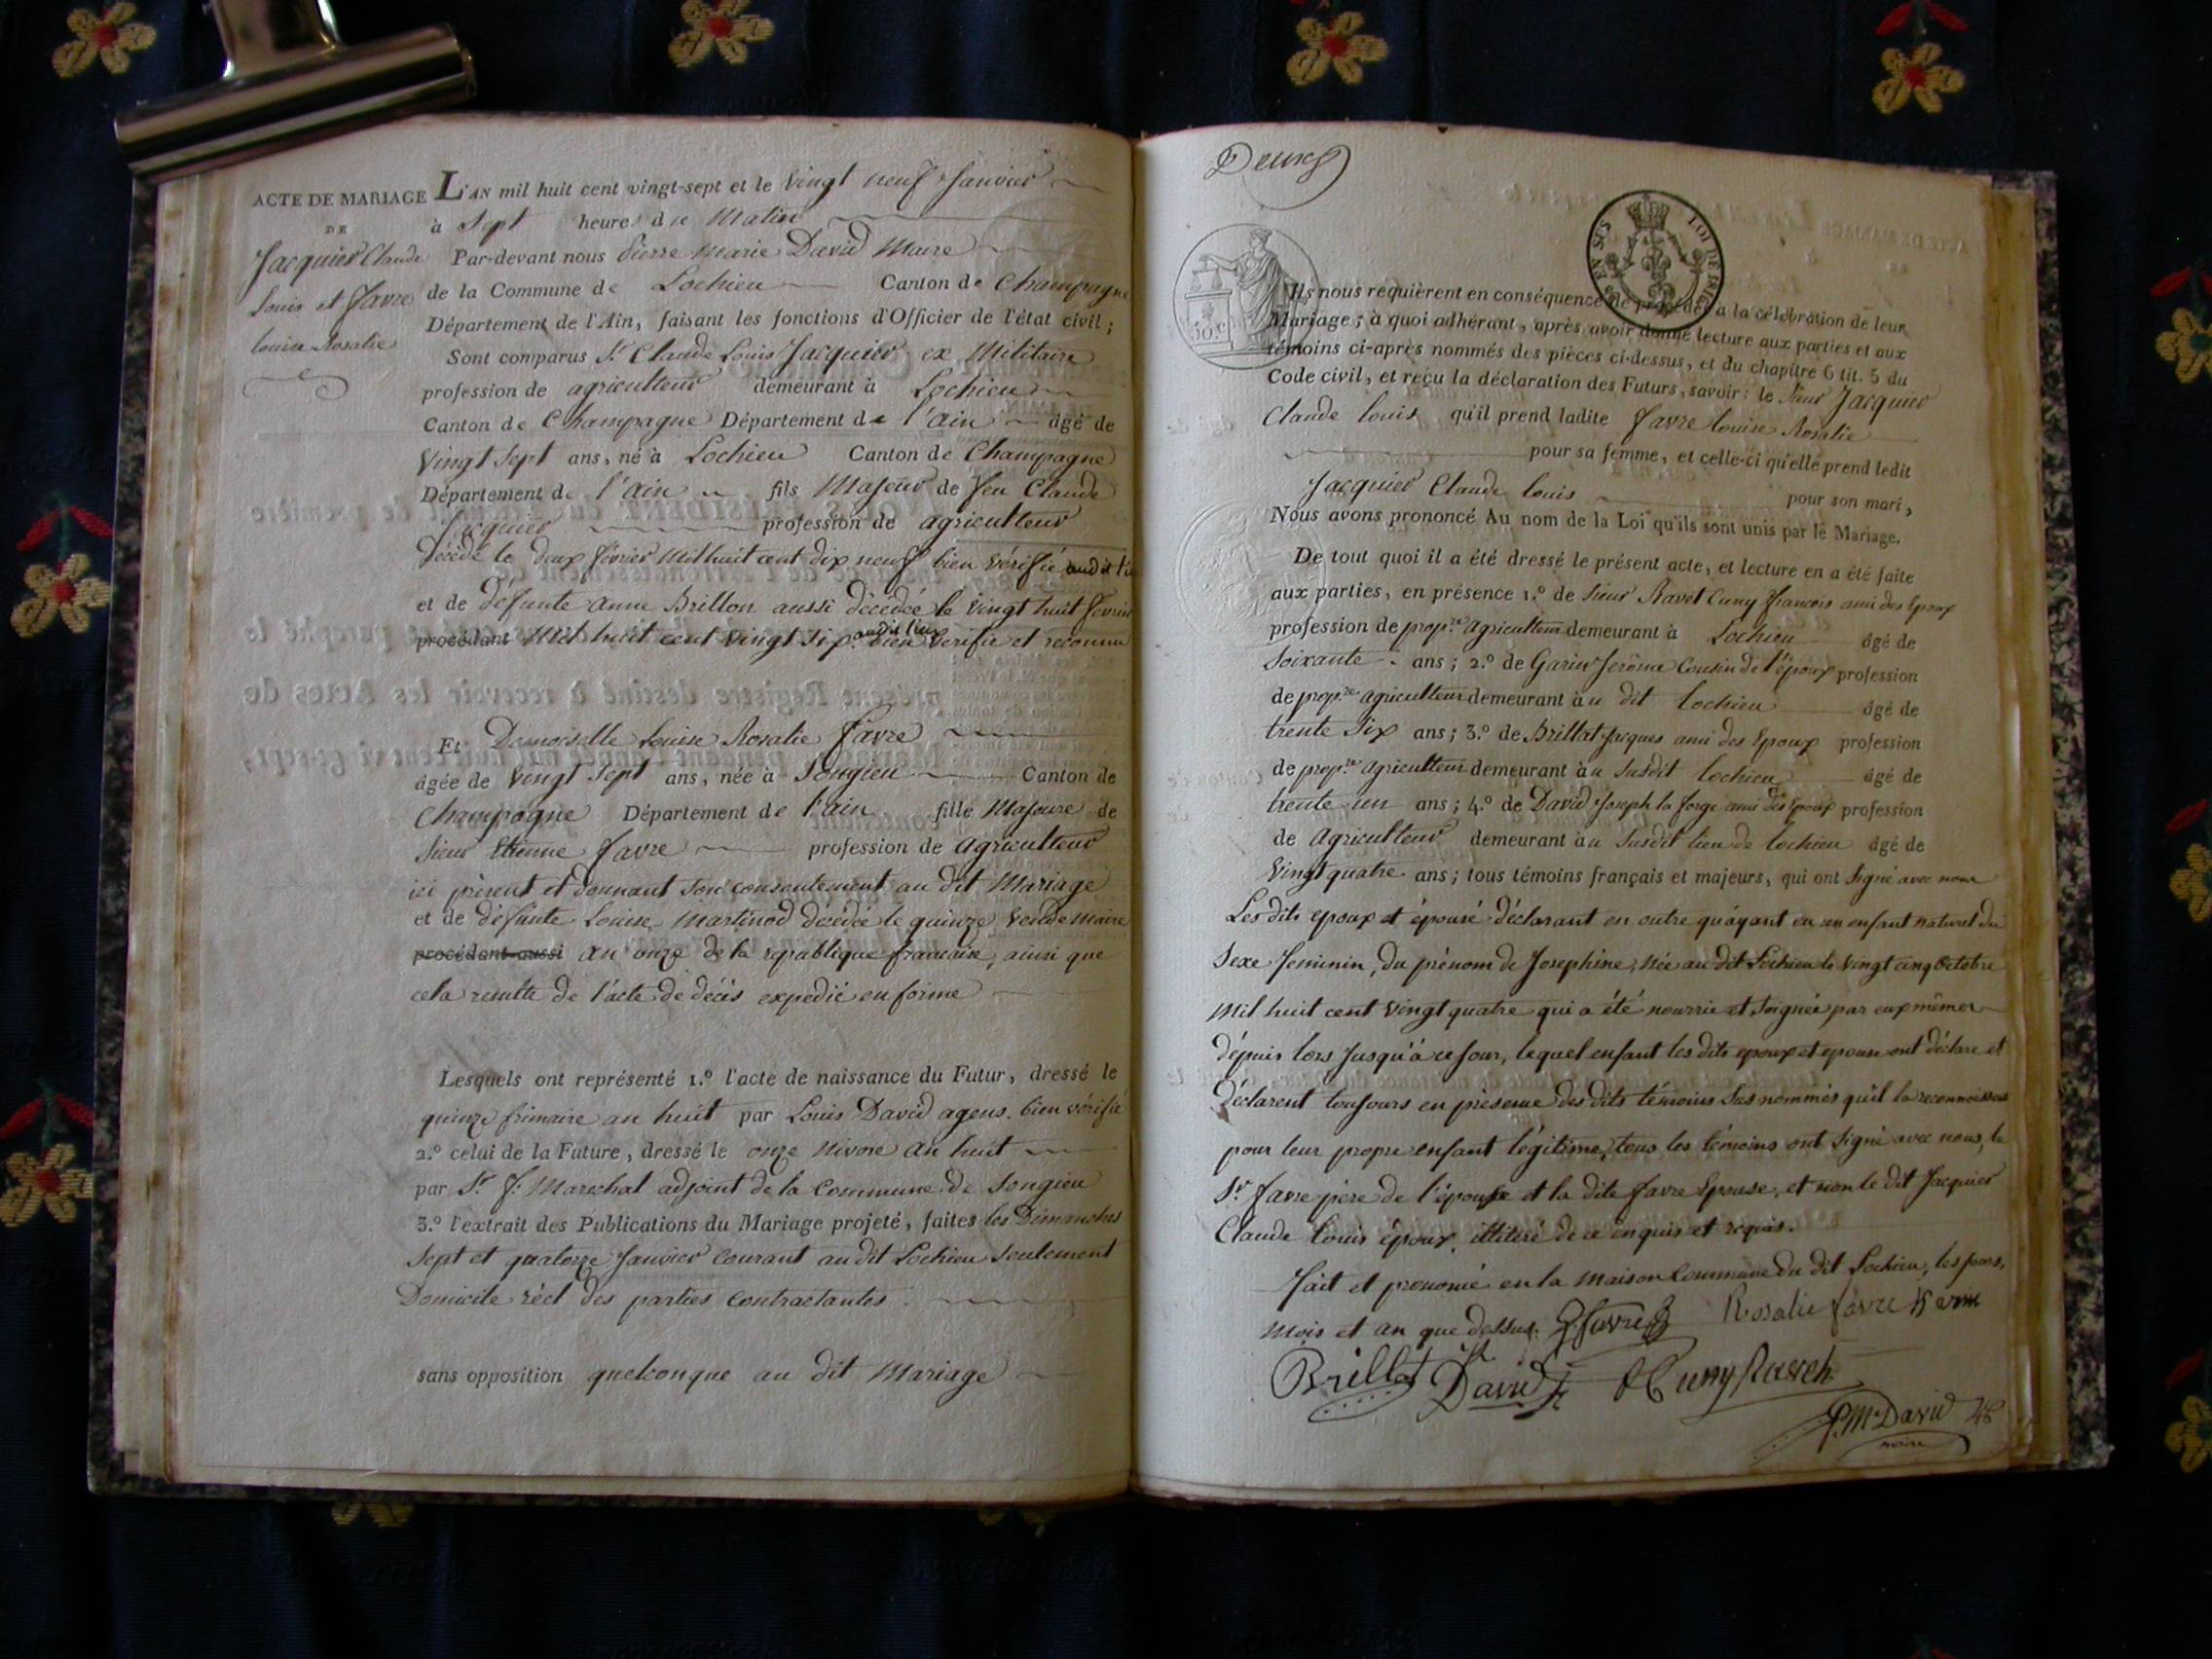 ACTE DE MARIAGE
DE
Jacquier Claude
Louis et favre
louise Rosalie
L'AN mil huit cent vingt-sept et le vingt neuf Janvier
à Sept heures du Matin
Par-devant nous Pierre Marie David Maire
de la Commune de Lochieu Canton de Champagne
Département de l'Ain, faisant les fonctions d'Officier de l'état civil ;
Sont comparus Sr Claude Louis Jacquier ex Militaire
profession de agriculteur demeurant à Lochieu
Canton de Champagne Département de l'ain âgé de
Vingt Sept ans, né à Lochieu Canton de Champagne
Département de l'ain fils Majeur de feu Claude
Jacquier profession de agriculteur
décédé le deux février Mil huit cent dix neuf bien vérifié audit lieu
et de défunte anne Brillon aussi décédée le vingt huit février
procédant Mil huit cent vingt Six. audit lieu bien verifié et reconnu
Et Demoiselle Louise Rosalie favre
âgée de vingt Sept ans, née à Songieu Canton de
Champagne Département de l'ain fille Majeure de
Sieur Etienne favre profession de agriculteur
ici présent et donnant Son consentement au dit Mariage
et de défunte Louise Martinod décédée le quinze Vendemiaire
procédant aussi an onze de la republique francaise, ainsi que
cela resulte de l'acte de décès expedié en forme
Lesquels ont représenté 1.º l'acte de naissance du Futur, dressé le
quinze frimaire an huit par Louis David agens. bien vérifié
2.º celui de la Future, dressé le onze Nivose an huit
par Sr f. Marechal adjoint de la Commune de Songieu
3.º l'extrait des Publications du Mariage projeté, faites les Dimanches
Sept et quatorze Janvier Courant au dit Lochieu Seulement
Domicile réel des parties Contractantes
sans opposition quelconque au dit Mariage
Deux
EN SUS LOI DE 1816
50.c
Ils nous requièrent en conséquence de procéder a la célébration de leur
Mariage ; à quoi adhérant, après avoir donné lecture aux parties et aux
témoins ci-après nommés des pièces ci-dessus, et du chapitre 6 tit. 5 du
Code civil, et reçu la déclaration des Futurs, savoir : le Sieur Jacquier
Claude Louis qu'il prend ladite favre Louise Rosalie
pour sa femme, et celle-ci qu'elle prend ledit
Jacquier Claude Louis pour son mari,
Nous avons prononcé Au nom de la Loi qu'ils sont unis par le Mariage.
De tout quoi il a été dressé le présent acte, et lecture en a été faite
aux parties, en présence 1.º de Sieur Ravet Cuny françois ami des Epoux
profession de prop.re agriculteur demeurant à Lochieu âgé de
Soixante ans ; 2.º de Garin Jerôme Cousin de l'époux profession
de prop.re agriculteur demeurant à u dit Lochieu âgé de
trente Six ans ; 3.º de Brillat Jacques ami des Epoux profession
de prop.re agriculteur demeurant à u Susdit Lochieu âgé de
trente un ans ; 4.º de David Joseph la forge ami des Epoux profession
de Agriculteur demeurant à u Susdit lieu de Lochieu âgé de
Vingt quatre ans ; tous témoins français et majeurs, qui ont Signé avec nous
Les dits epoux et épouse déclarant en outre qu'ayant eu un enfant naturel du
Sexe feminin, du prénom de Josephine, Née au dit Lochieu le vingt cinq Octobre
Mil huit cent vingt quatre qui a été nourrie et Soignée par eux mêmes
dépuis lors Jusqu'à ce Jour, lequel enfant les dits epoux et epouse ont déclaré et
déclarent toujours en présence des dits témoins Sus nommés qu'il la reconnoissent
pour leur propre enfant légitime, tous les témoins ont Signé avec nous, le
Sr favre père de l'épouse et la dite favre Epouse, et non le dit Jacquier
Claude Louis époux, illitéré de ce enquis et requis.
fait et prononcé en la Maison Commune du dit Lochieu, les jours,
Mois et an que dessus. favre Rosalie favre
Brillat Jh David Cuny Ravet
P.M. David
maire